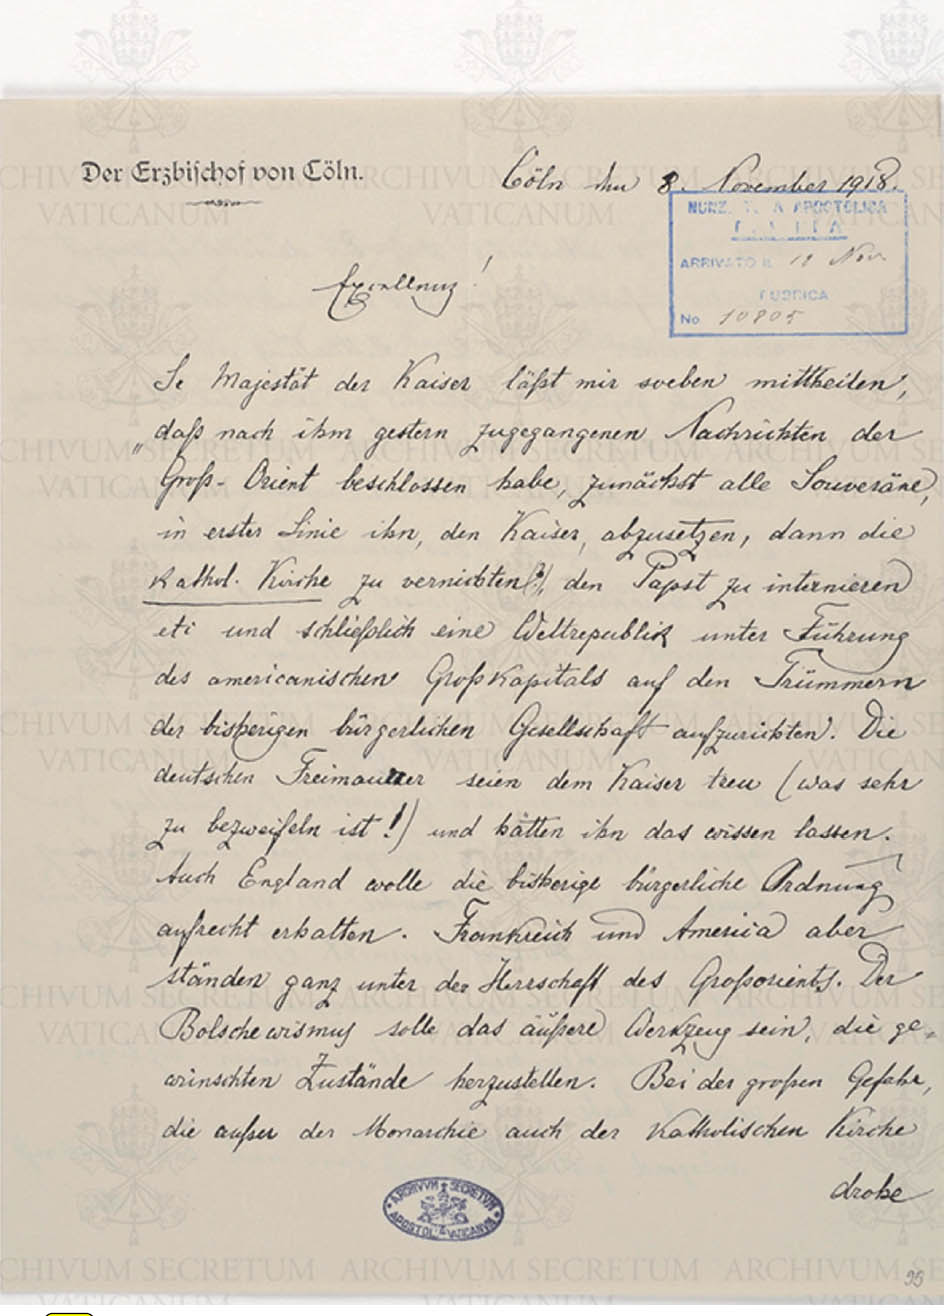 Der Erzbischof von Cöln.
Cöln den 8. November 1918.
NUNZ. A APOSTOLICA
ARRIVATO IL 18 Nov.
RUBRICA
No 10805
Excellenz!
Se Majestät der Kaiser läßt mir soeben mittheilen,
„daß nach ihm gestern zugegangenen Nachrichten der
Groß-Orient beschlossen habe, zunächst alle Souveräne,
in erster Linie ihn, den Kaiser, abzusetzen, dann die
Kathol. Kirche zu vernichten(?), den Papst zu internieren
etc und schließlich eine Weltrepublik unter Führung
des americanischen Großkapitals auf den Trümmern
der bisherigen bürgerlichen Gesellschaft aufzurichten. Die
deutschen Freimaurer seien dem Kaiser treu (was sehr
zu bezweifeln ist!) und hätten ihn das wissen lassen.
Auch England wolle die bisherige bürgerliche Ordnung
aufrecht erhalten. Frankreich und America aber
ständen ganz unter der Herrschaft des Großorients. Der
Bolschewismus solle das äußere Werkzeug sein, die ge-
wünschten Zustände herzustellen. Bei der großen Gefahr,
die außer der Monarchie auch der Katholischen Kirche
drohe
ARCHIVVM SECRETVM
APOSTOL. VATICANVM
95
ARCHIVUM SECRETUM
VATICANUM